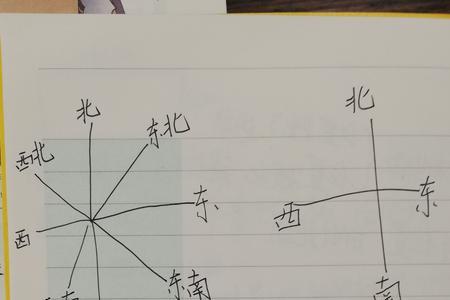 北
东北
西北
东
西
东南
南
北
东
西
南